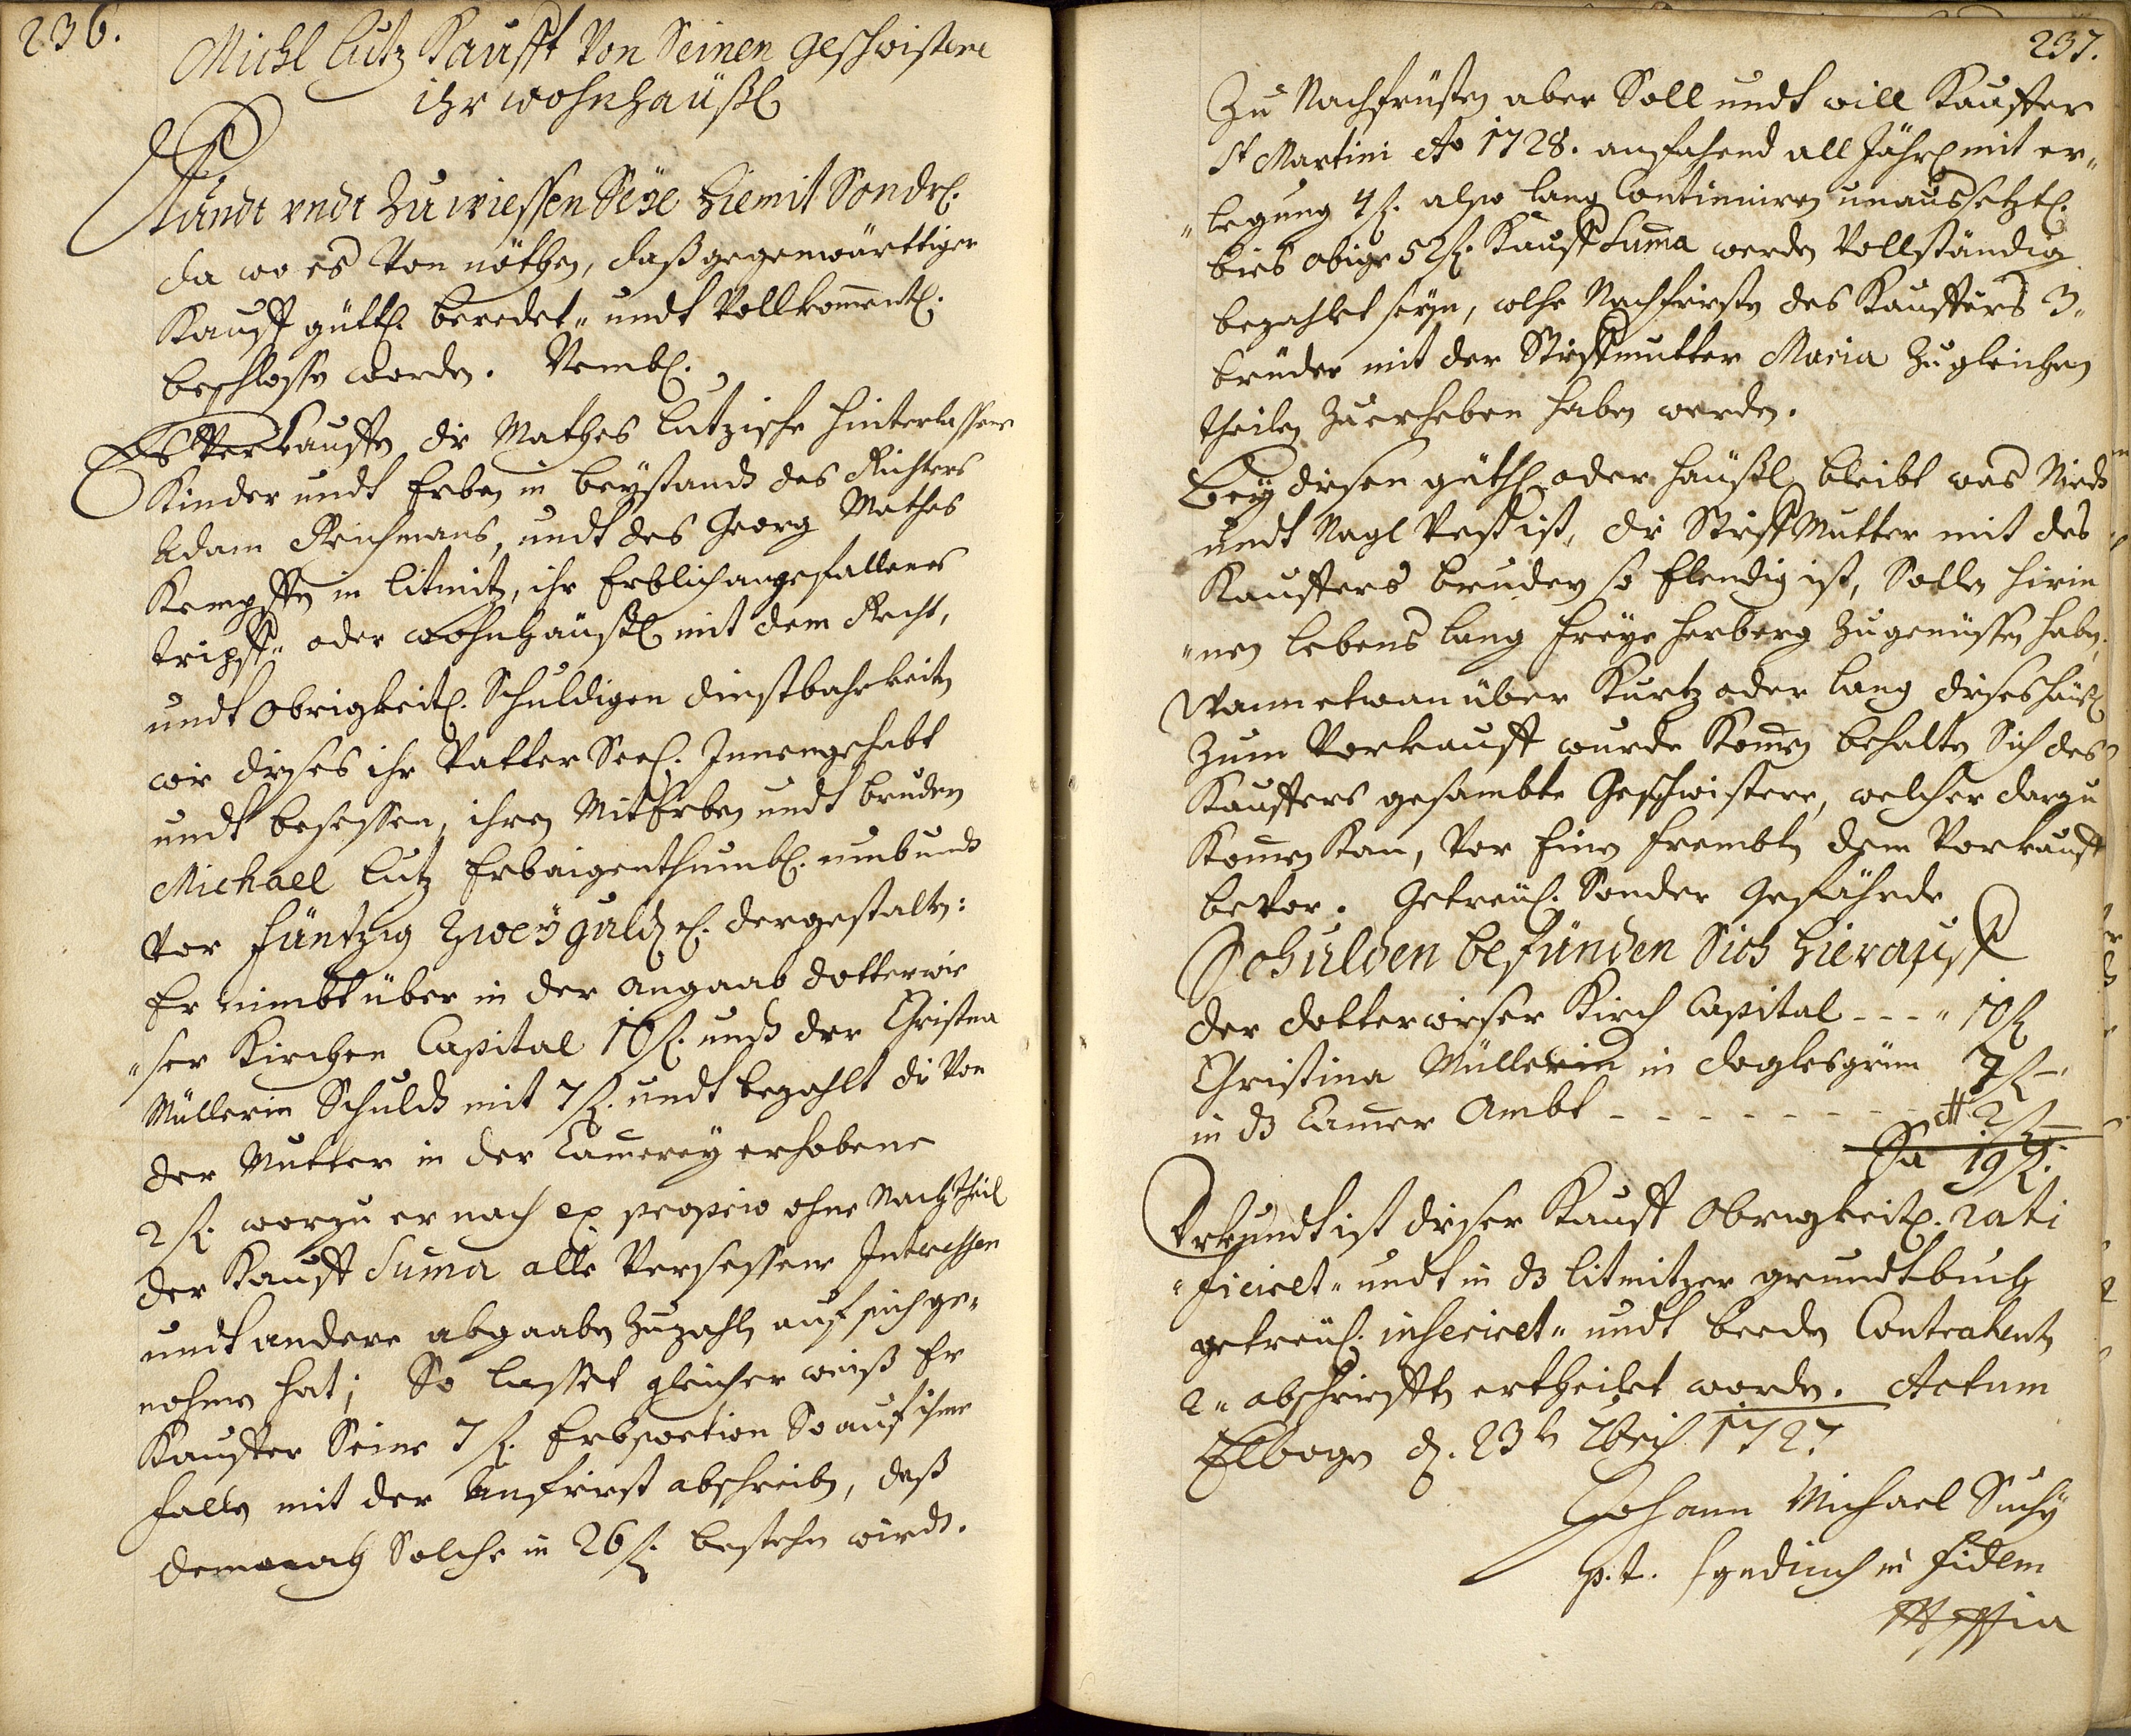 236.
Michl Lutz Kaufft Von Seinen geschwistere
ihr wohnhäußl
Kundt vndt Zu wiessen Seÿe hiemit Sondrl.
da wo es Von nöthen, daß gegenwärttiger
Kauff güttl. beredet„ undt Vollkommentl.
beschlossen worden. Nembl.
Es Verkauffen die Mathes Lutzische hinterlassene
Kinder undt Erben in beÿstandt des Richters
Adam Reichmans, undt des Georg Mathes
Kempffen in Litmitz, ihr Erblich angefallenes
tripff„ oder wohnhäußl mit dem Recht,
undt Obrigkeitl. Schuldigen dinstbahrkeiten
wie dieses ihr Vatter Seel. Innengehabt
undt besessen, ihren MitErben undt brudern
Michael Lutz Erbaigenthumbl. umb undt
Vor fünfzig Zweÿ guldn rl. dergestalten:
Er nimbt über in der angaab dotterwie„
„ser Kirchen Capital 10 fl. undt der Christina
Müllerin Schuldt mit 7 fl. undt bezahlt die Von
der Mutter in der Camereÿ erhobene
2 fl. worzu er nach ex proprio ohne Nachtheil
der Kauff Suma alle Versessene Interessen
undt andere abgaaben Zuzahlen auf sich ge„
nohmen hat; So lasset gleicher weiß Er
Kauffer Seine 7 fl. Erbportion So auf ihme
fallen mit der Anfrist abschreiben, daß
demnach Solche in 26 fl. bestehen wirdt.
237.
Zu Nachfrüsten aber Soll undt will Kauffer
St Martini Ao 1728. anfahend all Jährl mit er„
„legung 4 fl. also lang Continuiren unaussetzl.
bies obige 52 fl. Kauff Suma werden Vollständig
bezahlet seÿn, welche Nachfristen des Kauffers 3„
brüder mit der Stieffmutter Maria Zu gleichen
theilen Zuerheben haben werden.
Beÿ diesen güthl oder häußl bleibt was Nied
undt Nagl Vest ist, die StieffMutter mit des
Kauffers brudern so Elendig ist, Sollen hierin
„nen lebens lang freÿe herberg Zugenüssen haben,
Wann etwan über Kurtz oder lang dieses häußl
Zum Verkauff wurde Komen behalten Sich des
Kauffers gesambte Geschwistere, welcher darzu
Komen Kan, Vor Einen frembten dem Vorkauff
bevor. Getreül. Sonder Gefährde
Schulden befünden Sich hierauff
der dotterwieser Kirch Capital - - - „ 10 fl
Christina Müllerin in doglesgrün 7 fl –
in dß Camer Ambt - - - - - - - - 2 fl –
Sa 19 fl.
Vrkundt ist dieser Kauff Obrigkeitl. rati
„ficiret„ undt in dß Litmitzer grundtbuch
getreül. inseriret„ undt beeden Contrahenten
2„ abschriefften ertheilet worden. Actum
Elbogen d. 23t 7bris 1727
Johann Michael Suchÿ
p.t. Syndicus in fidem